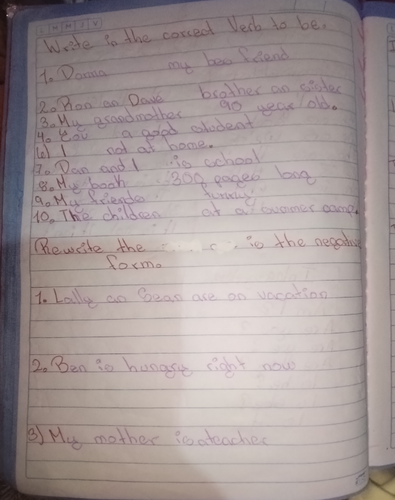 L M M J V
Write in the correct Verb to be.
1. Donna my boo friend
2. Ron an Dave brother an sister
3. My grandmother 90 year old.
4. You a good student
6) I not at home.
7. Dan and I in school
8. My book 300 pages long
9. My friends funny
10. The children at a summer camp.
Rewrite the in the negative
form.
1. Lally an Sean are on vacation
2. Ben is hungry right now
3) My mother is a teacher